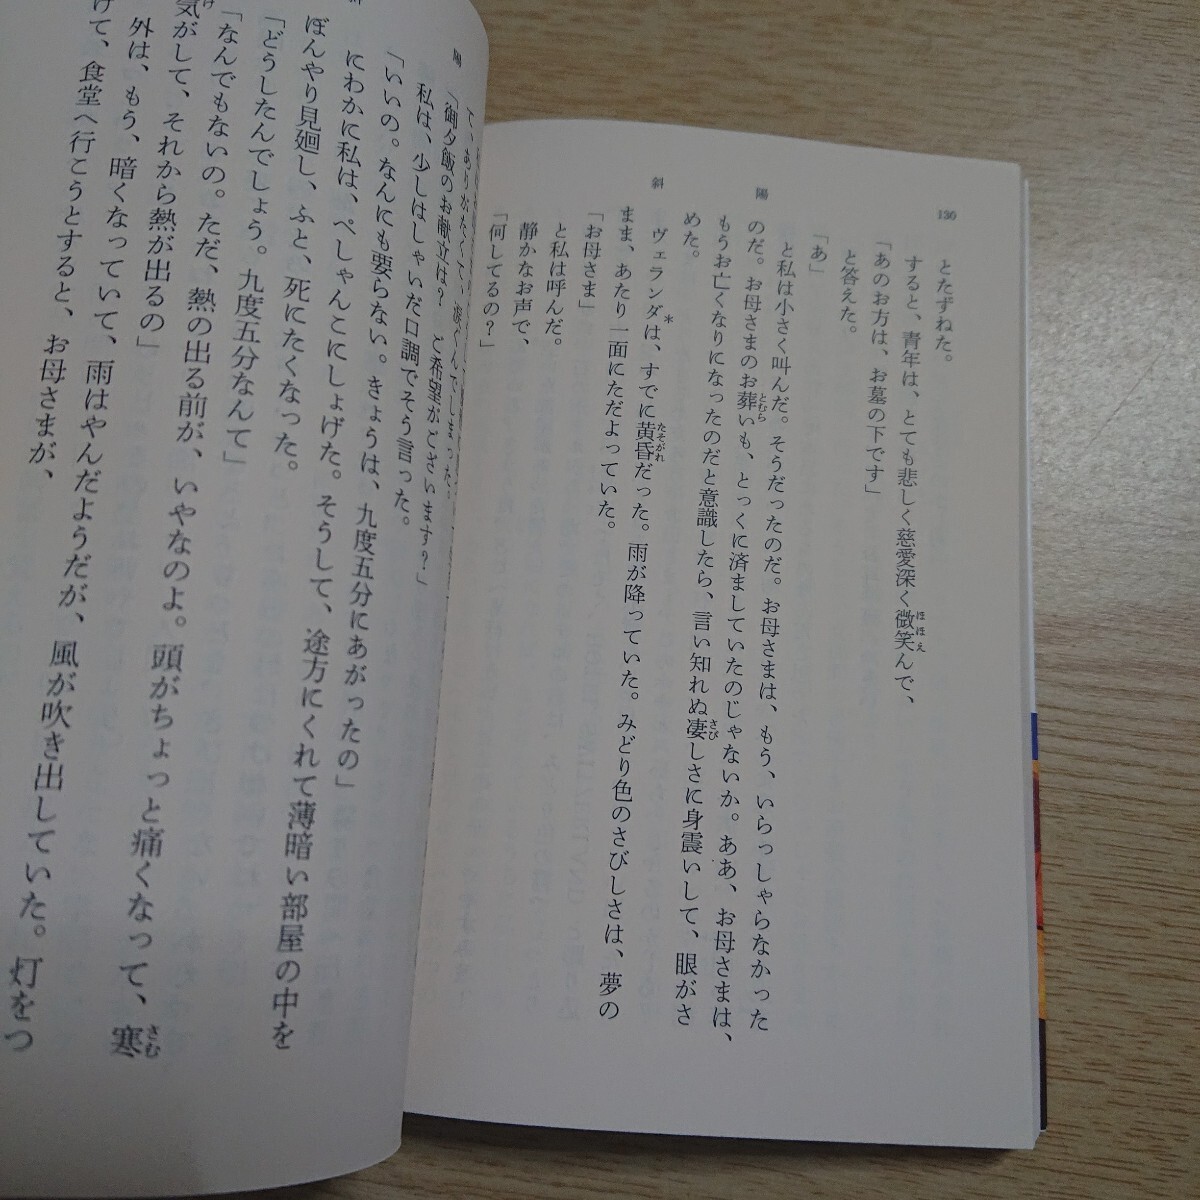 130
とたずねた。
すると、青年は、とても悲しく慈愛深く微笑んで、
「あのお方は、お墓の下です」
と答えた。
「あ」
と私は小さく叫んだ。そうだったのだ。お母さまは、もう、いらっしゃらなかった
のだ。お母さまのお葬いも、とっくに済ましていたのじゃないか。ああ、お母さまは、
もうお亡くなりになったのだと意識したら、言い知れぬ凄しさに身震いして、眼がさ
めた。
ヴェランダ*は、すでに黄昏だった。雨が降っていた。みどり色のさびしさは、夢の
まま、あたり一面にただよっていた。
「お母さま」
と私は呼んだ。
静かなお声で、
「何してるの?」
斜陽
陽
「御夕飯のお献立は? ご希望がございます?」
私は、少しはしゃいだ口調でそう言った。
「いいの。なんにも要らない。きょうは、九度五分にあがったの」
にわかに私は、ぺしゃんこにしょげた。そうして、途方にくれて薄暗い部屋の中を
ぼんやり見廻し、ふと、死にたくなった。
「どうしたんでしょう。九度五分なんて」
「なんでもないの。ただ、熱の出る前が、いやなのよ。頭がちょっと痛くなって、寒
気がして、それから熱が出るの」
外は、もう、暗くなっていて、雨はやんだようだが、風が吹き出していた。灯をつ
けて、食堂へ行こうとすると、お母さまが、